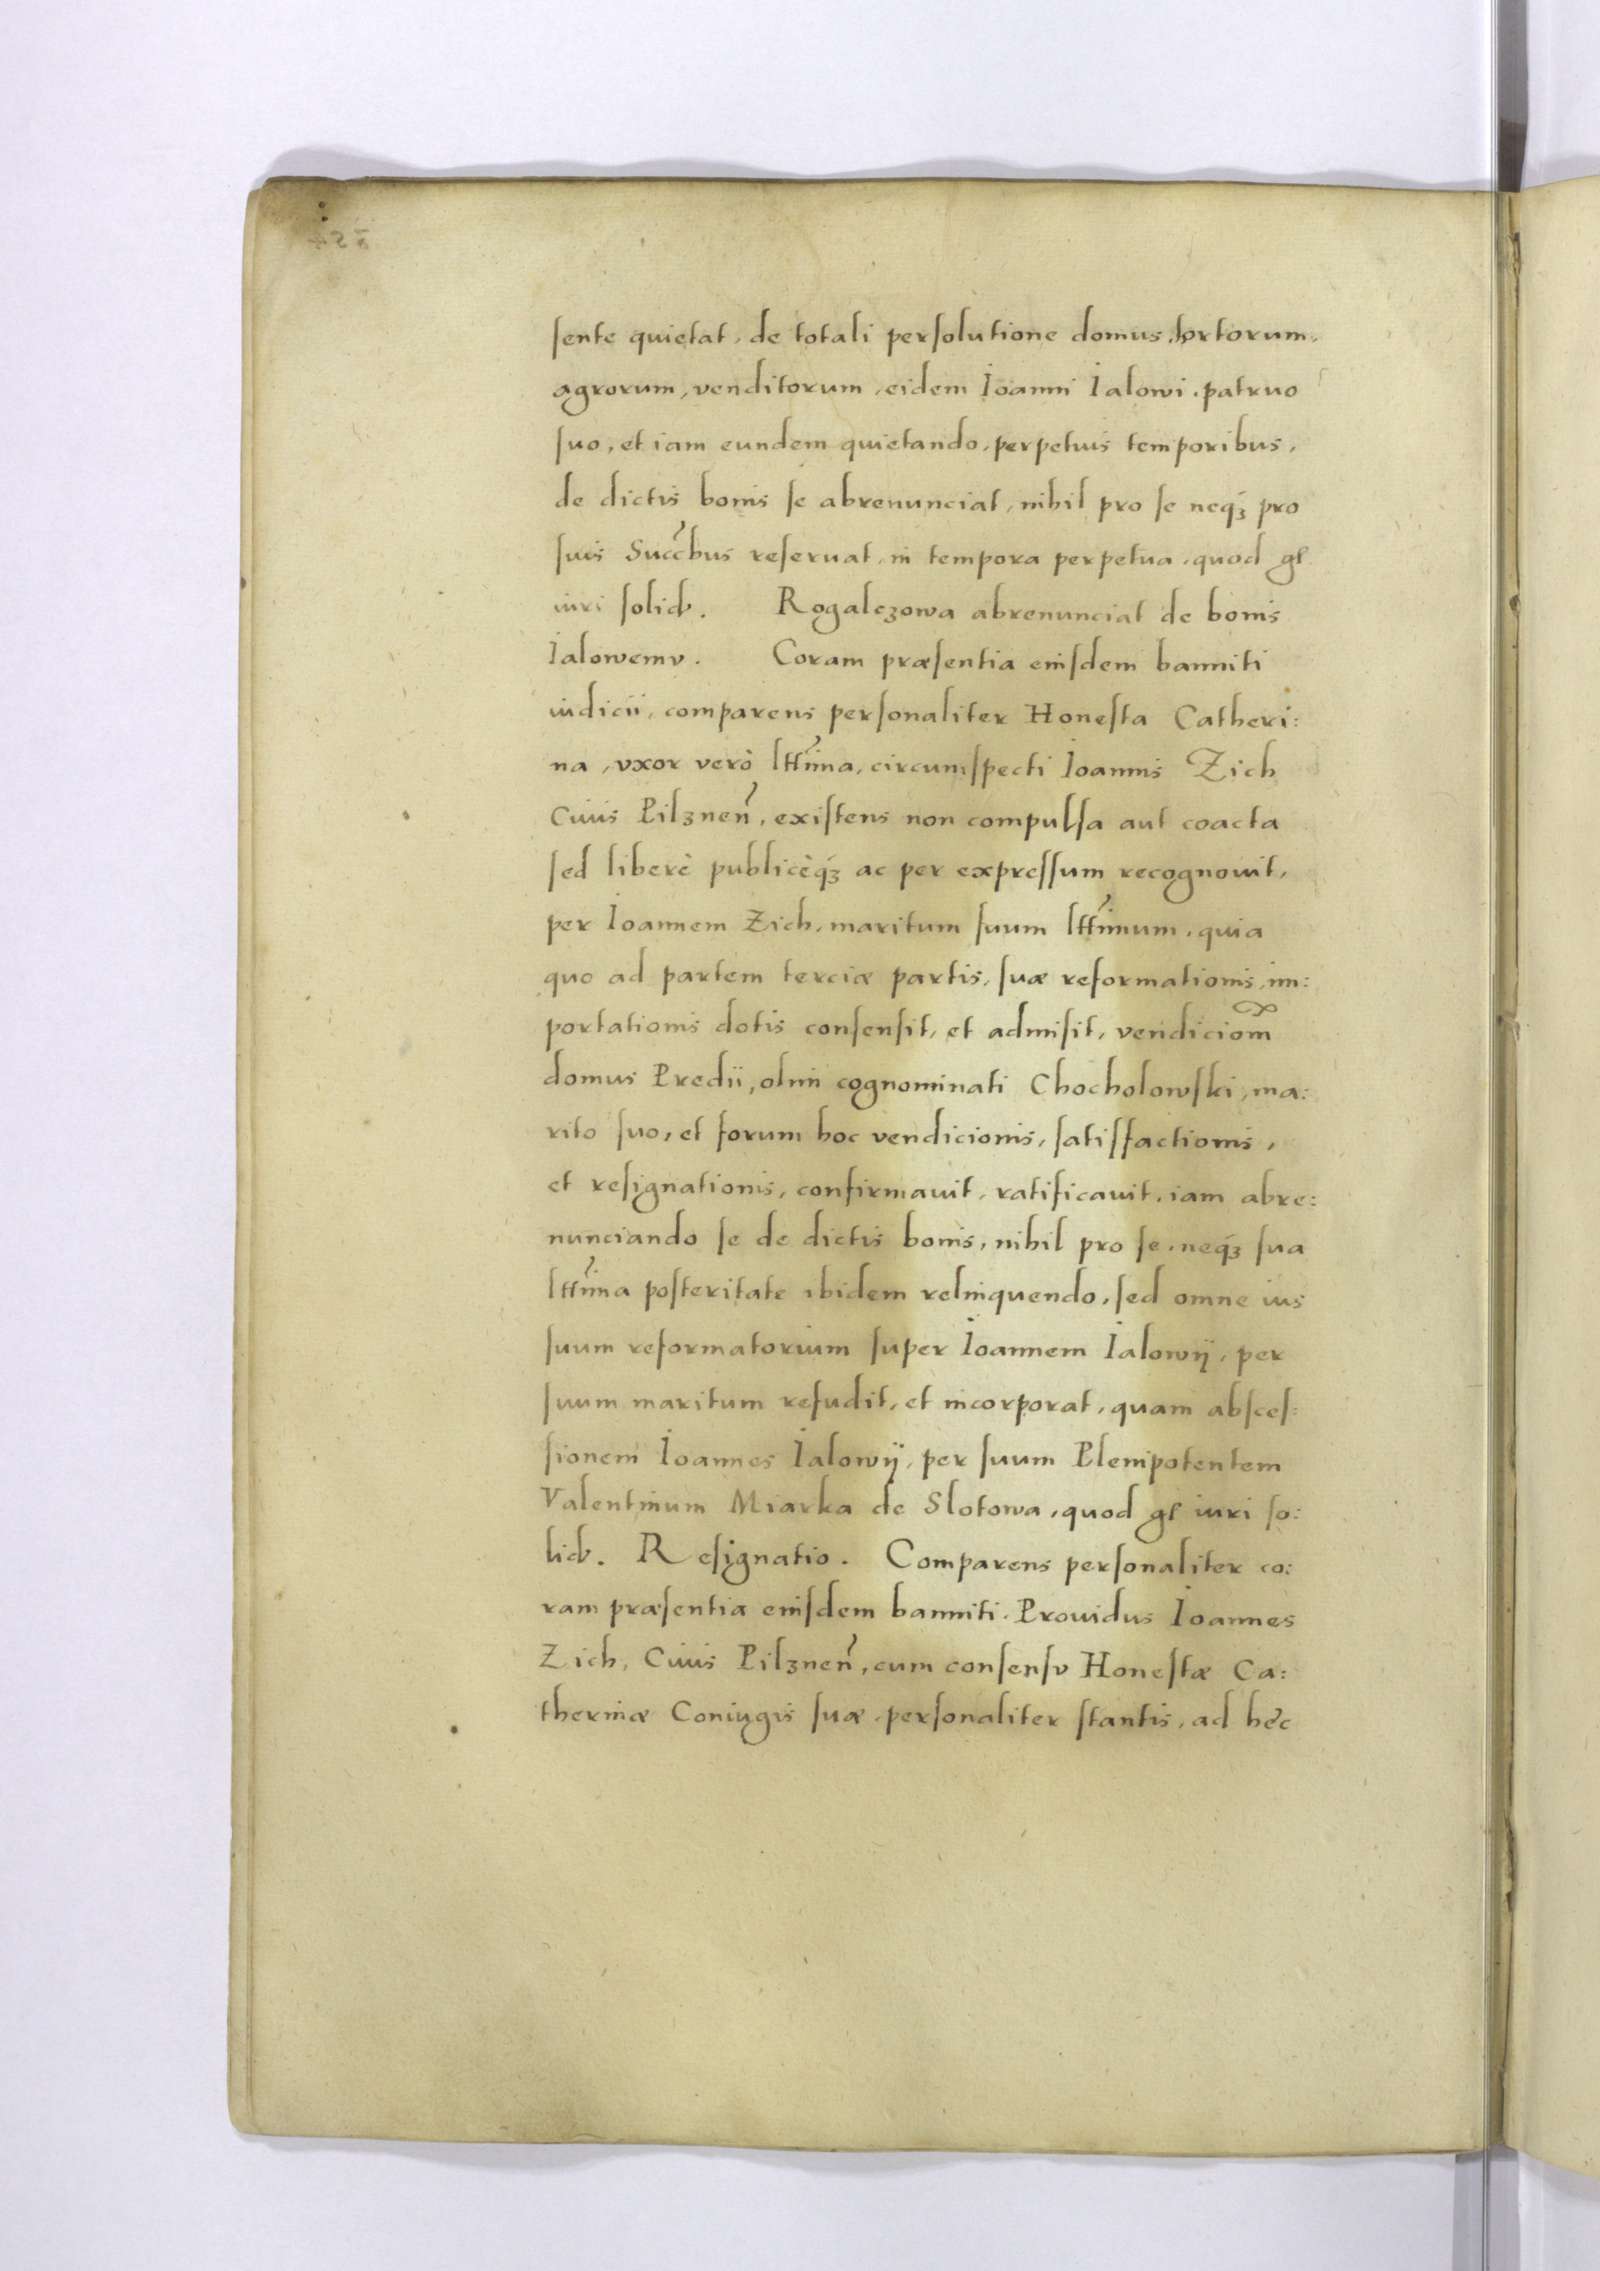 sente quietat, de totali persolutione domus, hortorum,
agrorum, venditorum, eidem Ioanni Ialowi, patruo
suo, et iam eundem quietando, perpetuis temporibus,
de dictis bonis se abrenunciat, nihil pro se neqꝫ pro
suis Succ̃bus reseruat, in tempora perpetua, quod gl
iuri solid. Rogalczowa abrenunciat de bonis
Ialowemv. Coram præsentia eiusdem banniti
iudicii, comparens personaliter Honesta Catheri:
na, vxor verò ltt̃ima, circumspecti Ioannis Zich
Ciuis Pilznen̄, existens non compulsa aut coacta
sed liberè publicèqꝫ ac per expressum recognouit,
per Ioannem Zich, maritum suum ltt̃imum, quia
quo ad partem terciæ partis, suæ reformationis, im:
portationis dotis consensit, et admisit, vendiciom̃
domus Predii, olim cognominati Chocholowski, ma:
rito suo, et forum hoc vendicionis, satisfactionis,
et resignationis, confirmauit, ratificauit, iam abre:
nunciando se de dictis bonis, nihil pro se, neqꝫ sua
ltt̃ima posteritate ibidem relinquendo, sed omne ius
suum reformatorium super Ioannem Ialowij, per
suum maritum refudit, et incorporat, quam absces:
sionem Ioannes Ialowij, per suum Plenipotentem
Valentinum Miarka de Slotowa, quod gl iuri so:
lid. Resignatio. Comparens personaliter co:
ram præsentia eiusdem banniti, Prouidus Ioannes
Zich, Ciuis Pilznen̄, cum consensv Honestæ Ca:
therinæ Coniugis suæ, personaliter stantis, ad hec